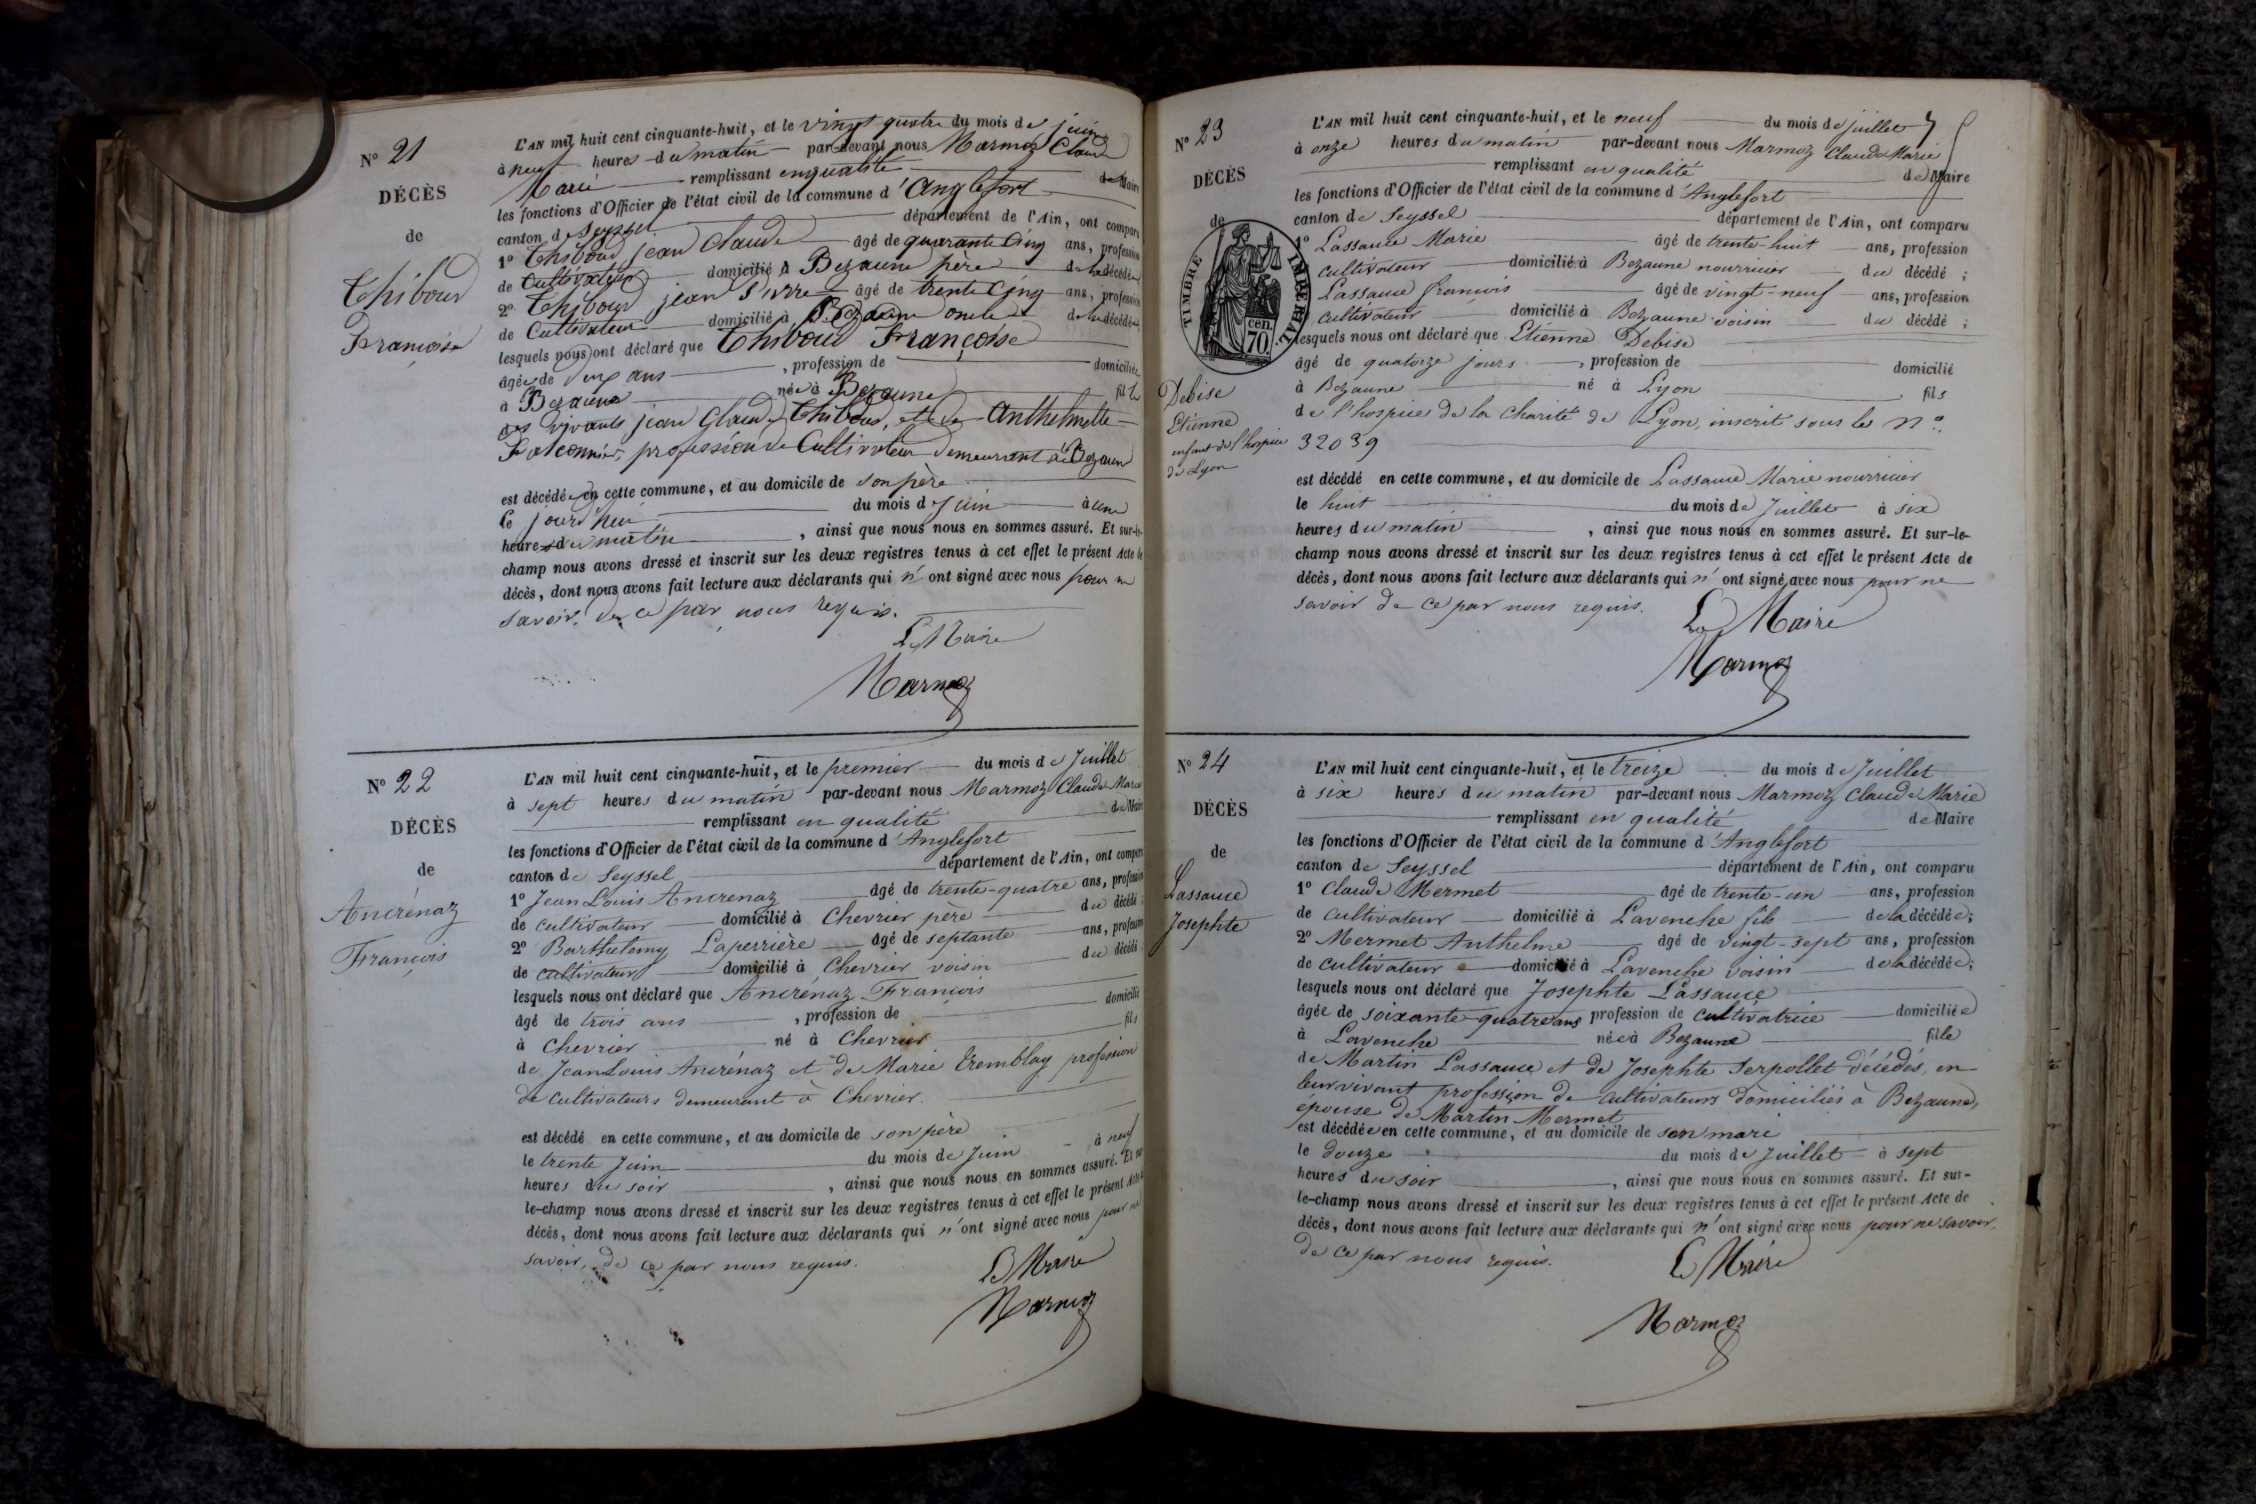 N° 21
DÉCÈS
de
Thiboud
Françoise
L'AN mil huit cent cinquante-huit, et le vingt quatre du mois de juin
à neuf heures du matin par-devant nous Marmoz Claude
Marie remplissant en qualité de Maire
les fonctions d'Officier de l'état civil de la commune d'Anglefort
canton de Seyssel département de l'Ain, ont comparu
1° Thiboud jean Claude âgé de quarante Cinq ans, profession
de Cultivateur domicilié à Bezaune père de la décédée
2° Thiboud jean Pierre âgé de trente Cinq ans, profession
de Cultivateur domicilié à Bezaune oncle de la décédée
lesquels nous ont déclaré que Thiboud Françoise
âgée de deux ans , profession de domiciliée
à Bezaune née à Bezaune fille
des vivants jean Claude Thiboud, et de Anthelmette
Falconnier, profession de Cultivateur demeurant à Bezaune
est décédée en cette commune, et au domicile de son père
le jourd'hui du mois de juin à une
heure du matin , ainsi que nous nous en sommes assuré. Et sur-le-
champ nous avons dressé et inscrit sur les deux registres tenus à cet effet le présent Acte de
décès, dont nous avons fait lecture aux déclarants qui n'ont signé avec nous pour ne
savoir, de ce par nous requis.
Le Maire
Marmoz
N° 22
DÉCÈS
de
Ancrénaz
François
L'AN mil huit cent cinquante-huit, et le premier du mois de Juillet
à sept heures du matin par-devant nous Marmoz Claude Marie
remplissant en qualité de Maire
les fonctions d'Officier de l'état civil de la commune d'Anglefort
canton de Seyssel département de l'Ain, ont comparu
1° Jean Louis Ancrenaz âgé de trente-quatre ans, profession
de cultivateur domicilié à Chevrier père du décédé
2° Barthelemy Laperrière âgé de septante ans, profession
de cultivateur domicilié à Chevrier voisin du décédé
lesquels nous ont déclaré que Ancrénaz François
âgé de trois ans , profession de domicilié
à Chevrier né à Chevrier fils
de Jean Louis Ancrénaz et de Marie Tremblay profession
de cultivateurs demeurant à Chevrier.
est décédé en cette commune, et au domicile de son père
le trente Juin du mois de Juin à neuf
heures du soir , ainsi que nous nous en sommes assuré. Et sur-
le-champ nous avons dressé et inscrit sur les deux registres tenus à cet effet le présent Acte de
décès, dont nous avons fait lecture aux déclarants qui n'ont signé avec nous pour ne
savoir, de ce par nous requis.
Le Maire
Marmoz
N° 23
DÉCÈS
de
TIMBRE IMPÉRIAL
70 cen.
Debise
Etienne
enfant de l'hospice
de Lyon
L'AN mil huit cent cinquante-huit, et le neuf du mois de juillet
à onze heures du matin par-devant nous Marmoz Claude Marie
remplissant en qualité de Maire
les fonctions d'Officier de l'état civil de la commune d'Anglefort
canton de Seyssel département de l'Ain, ont comparu
1° Lassauce Marie âgé de trente-huit ans, profession
cultivateur domicilié à Bezaune nourricier du décédé ;
Lassauce françois âgé de vingt-neuf ans, profession
cultivateur domicilié à Bezaune voisin du décédé ;
lesquels nous ont déclaré que Etienne Debise
âgé de quatorze jours , profession de domicilié
à Bezaune né à Lyon fils
de l'hospice de la charité de Lyon, inscrit sous le n°
32039
est décédé en cette commune, et au domicile de Lassauce Marie nourricier
le huit du mois de Juillet à six
heures du matin , ainsi que nous nous en sommes assuré. Et sur-le-
champ nous avons dressé et inscrit sur les deux registres tenus à cet effet le présent Acte de
décès, dont nous avons fait lecture aux déclarants qui n'ont signé avec nous pour ne
savoir de ce par nous requis.
Le Maire
Marmoz
N° 24
DÉCÈS
de
Lassauce
Josephte
L'AN mil huit cent cinquante-huit, et le treize du mois de Juillet
à six heures du matin par-devant nous Marmoz Claude Marie
remplissant en qualité de Maire
les fonctions d'Officier de l'état civil de la commune d'Anglefort
canton de Seyssel département de l'Ain, ont comparu
1° Claude Mermet âgé de trente-un ans, profession
de cultivateur domicilié à Lavenche fils de la décédée ;
2° Mermet Anthelme âgé de vingt-sept ans, profession
de cultivateur domicilié à Lavenche voisin de la décédée ;
lesquels nous ont déclaré que Josephte Lassauce
âgée de soixante-quatre ans profession de cultivatrice domiciliée
à Lavenche née à Bezaune fille
de Martin Lassauce et de Josephte Serpollet décédés, en
leur vivant profession de cultivateurs domiciliés à Bezaune,
épouse de Martin Mermet
est décédée en cette commune, et au domicile de son mari
le douze du mois de Juillet à sept
heures du soir , ainsi que nous nous en sommes assuré. Et sur-
le-champ nous avons dressé et inscrit sur les deux registres tenus à cet effet le présent Acte de
décès, dont nous avons fait lecture aux déclarants qui n'ont signé avec nous pour ne savoir
de ce par nous requis.
Le Maire
Marmoz